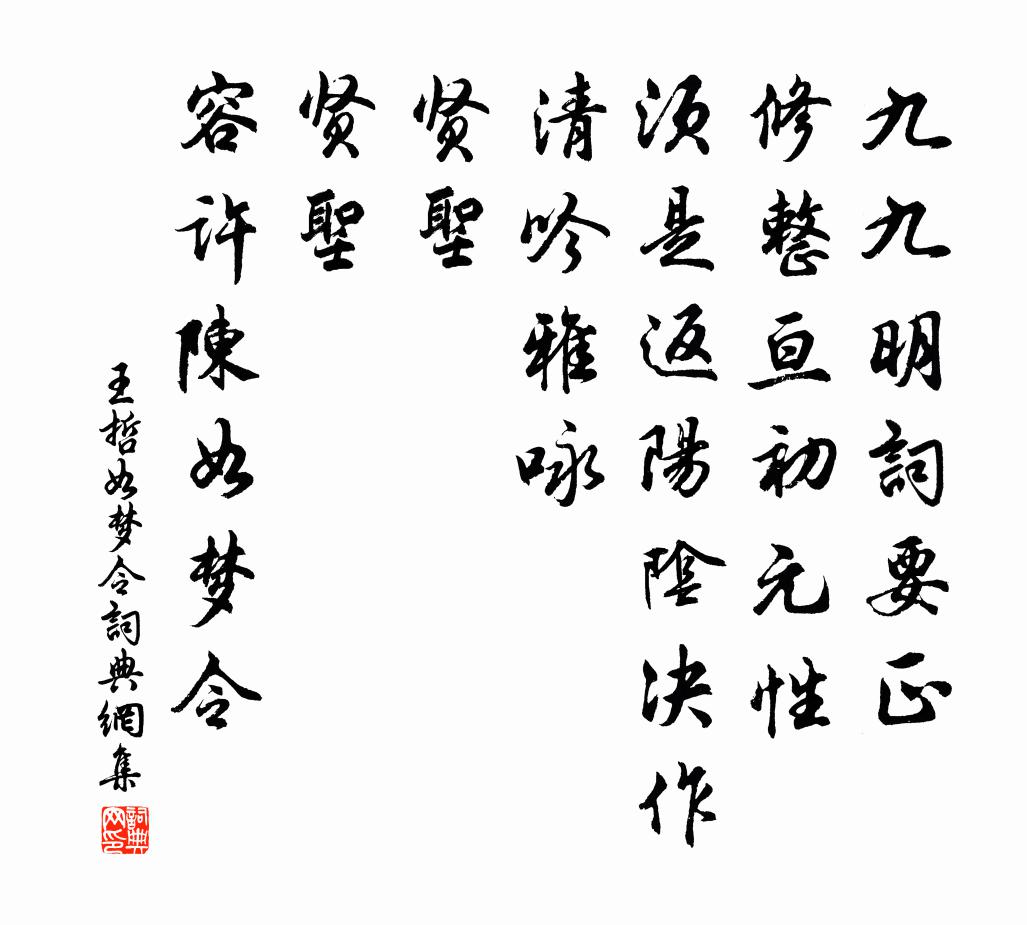 九九明詞要正
修整亘初元性
須是返陽陰決作
清吟雅咏
贤聖
贤聖
容许陳如梦令
王哲如梦令詞典網集
詞典网印